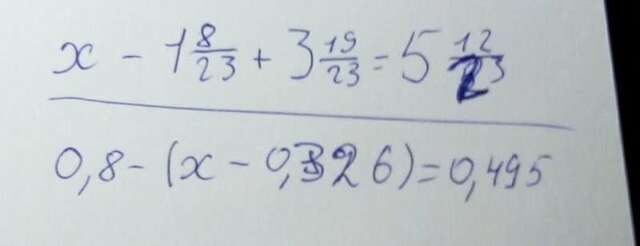 x - 1 8/23 + 3 19/23 = 5 12/23
0,8 - (x - 0,326) = 0,495